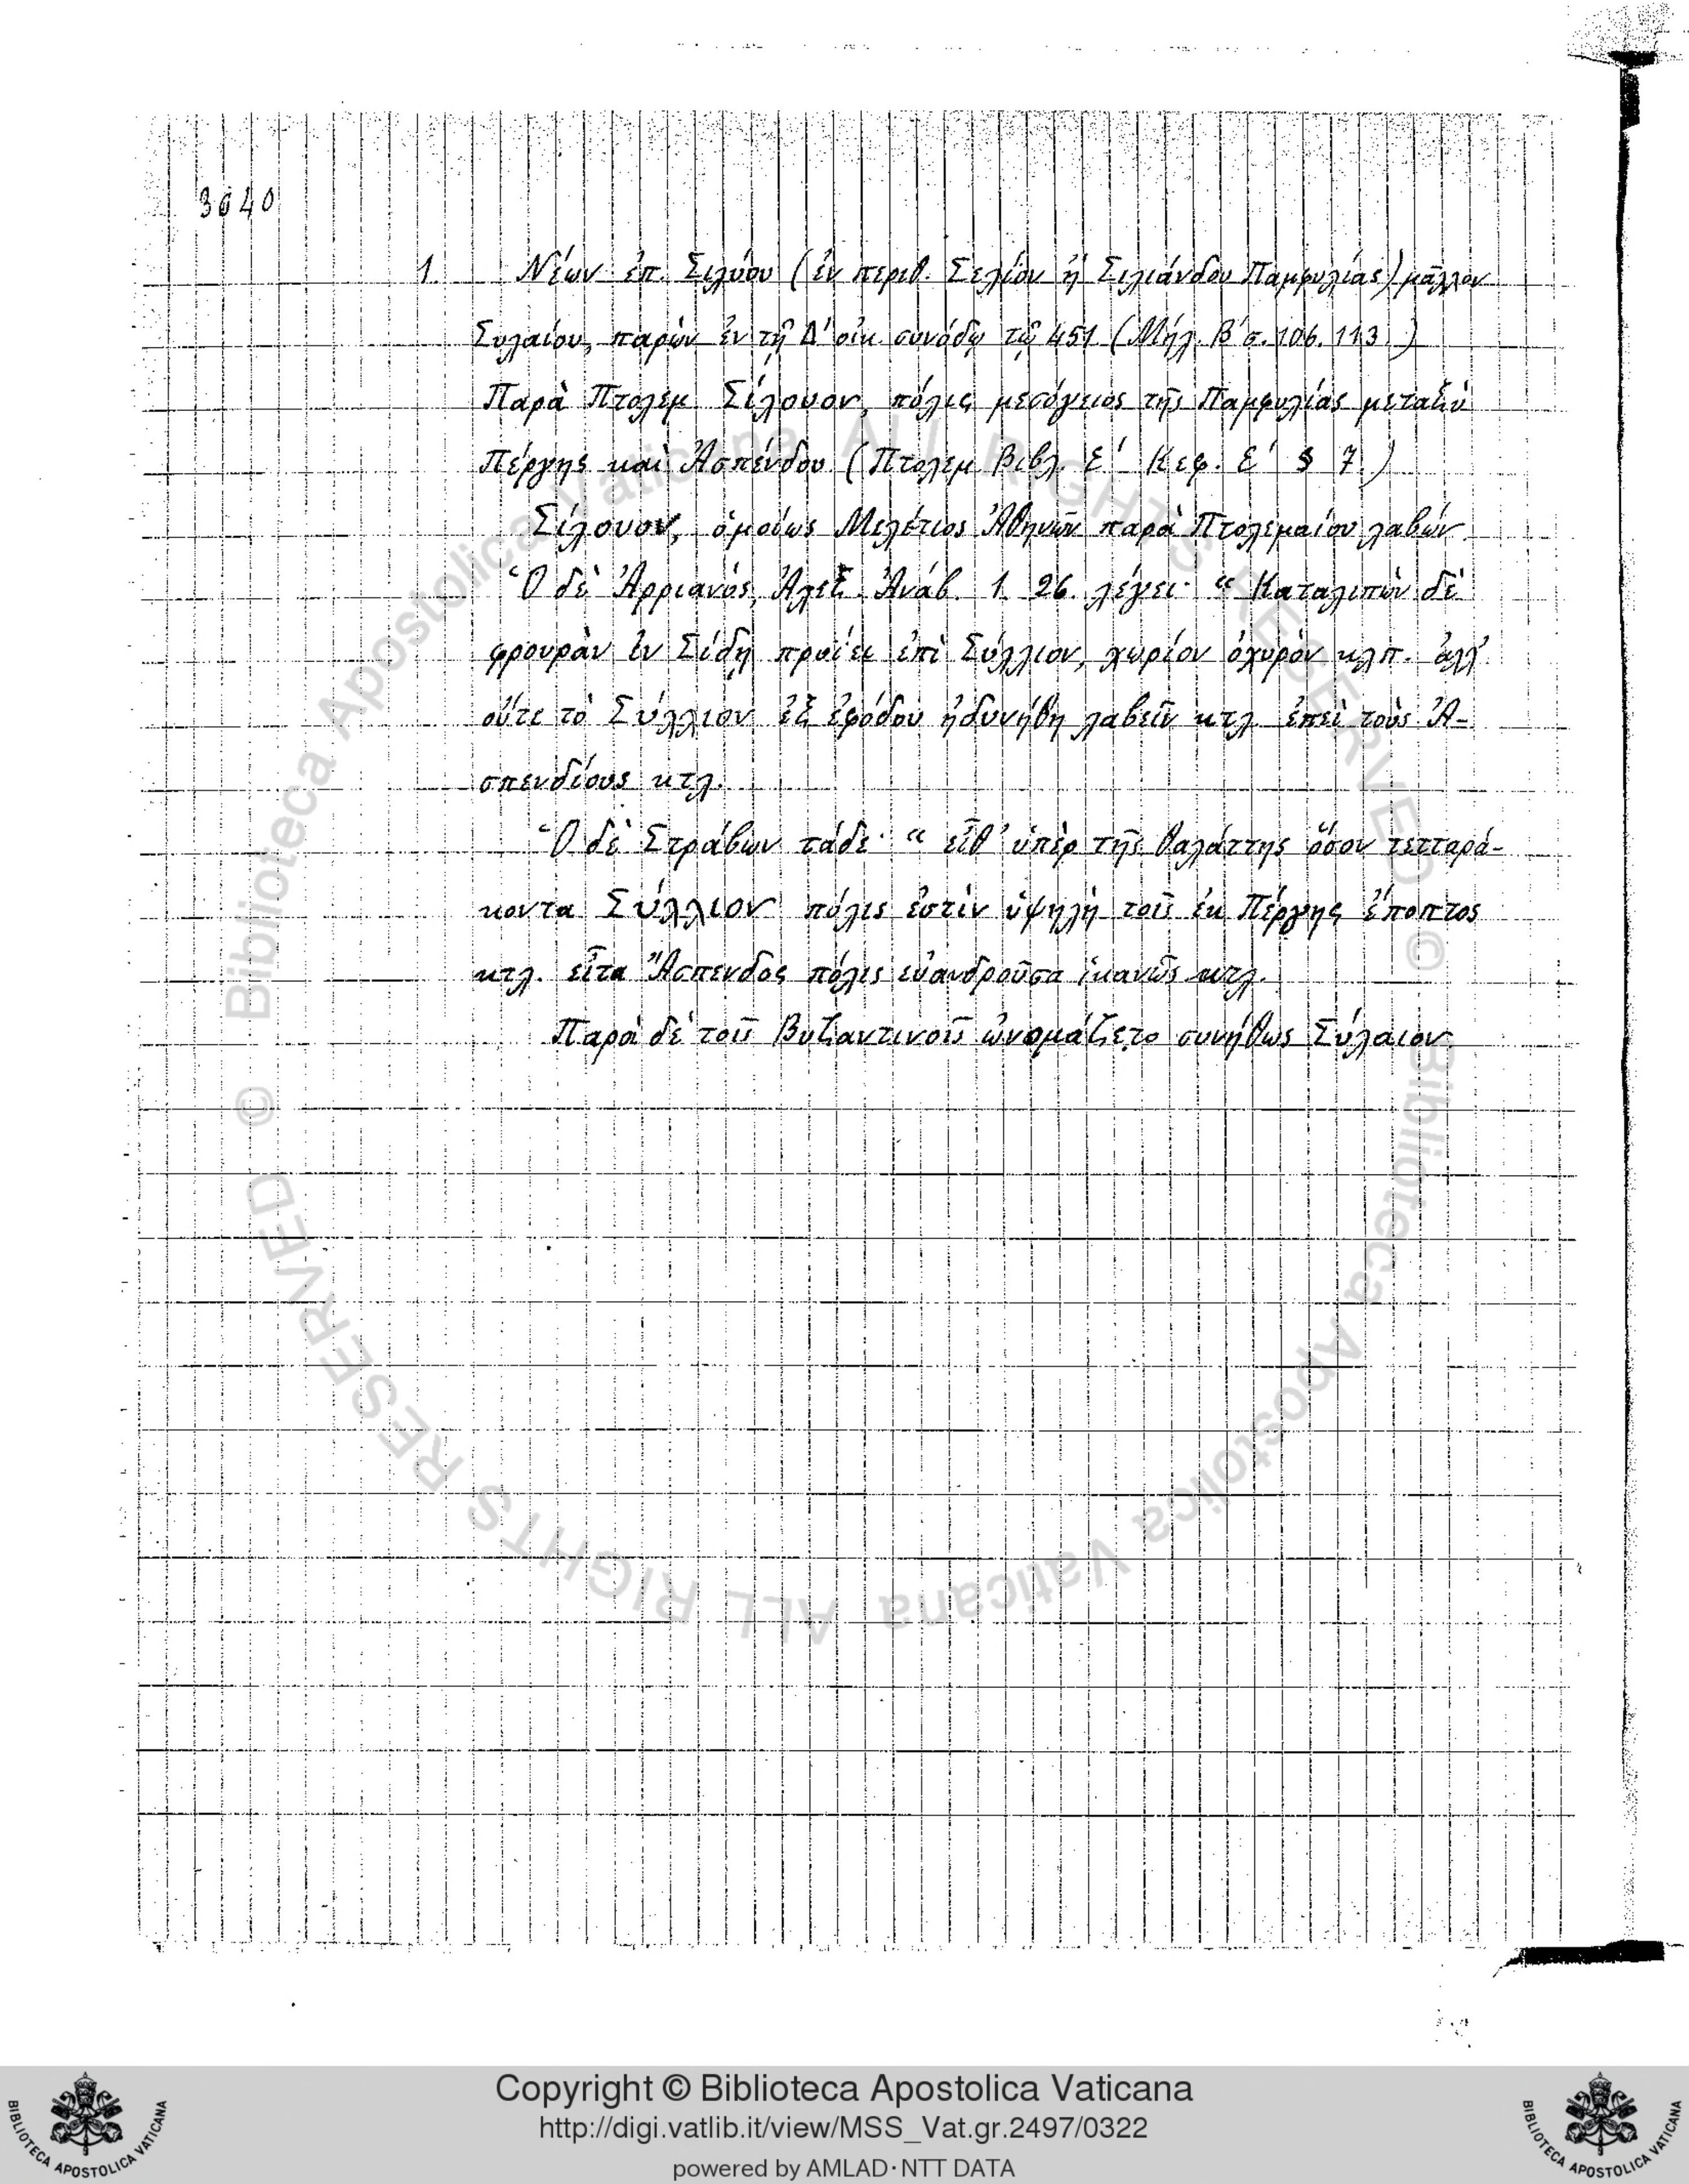 3640
1. Νέων ἐπ. Σιλύου (ἐν περιθ. Σελίου ἢ Σιλιάνδου Παμφυλίας) μᾶλλον
Συλαίου, παρὼν ἐν τῇ Δ' οἰκ. συνόδῳ τῷ 451 (Μήλ. Β' σ. 106. 113)
Παρὰ Πτολεμ Σίλουον, πόλις μεσόγειος τῆς Παμφυλίας μεταξὺ
Πέργης καὶ Ἀσπένδου (Πτολεμ Βιβλ. Ε' Κεφ. Ε' § 7.)
Σίλουον, ὁμοίως Μελέτιος Ἀθηνῶν παρὰ Πτολεμαίου λαβών.
Ὁ δὲ Ἀρριανός, Ἀλεξ. Ἀνάβ. 1. 26. λέγει· “ Καταλιπὼν δὲ
φρουρὰν ἐν Σίδῃ προΐει ἐπὶ Σύλλιον, χωρίον ὀχυρὸν κλπ. ἀλλ'
οὔτε τὸ Σύλλιον ἐξ ἐφόδου ἠδυνήθη λαβεῖν κτλ. ἐπεὶ τοὺς Ἀ-
σπενδίους κτλ.
Ὁ δὲ Στράβων τάδε· “ εἶθ' ὑπὲρ τῆς θαλάττης ὅσον τετταρά-
κοντα Σύλλιον πόλις ἐστὶν ὑψηλὴ τοῖς ἐκ Πέργης ἔποπτος
κτλ. εἶτα Ἄσπενδος πόλις εὐανδροῦσα ἱκανῶς κτλ.
Παρὰ δὲ τοῖς Βυζαντινοῖς ὠνομάζετο συνήθως Σύλαιον.
© Biblioteca Apostolica Vaticana ALL RIGHTS RESERVED
© Biblioteca Apostolica Vaticana ALL RIGHTS RESERVED
Copyright © Biblioteca Apostolica Vaticana
http://digi.vatlib.it/view/MSS_Vat.gr.2497/0322
powered by AMLAD·NTT DATA
BIBLIOTECA APOSTOLICA VATICANA
BIBLIOTECA APOSTOLICA VATICANA